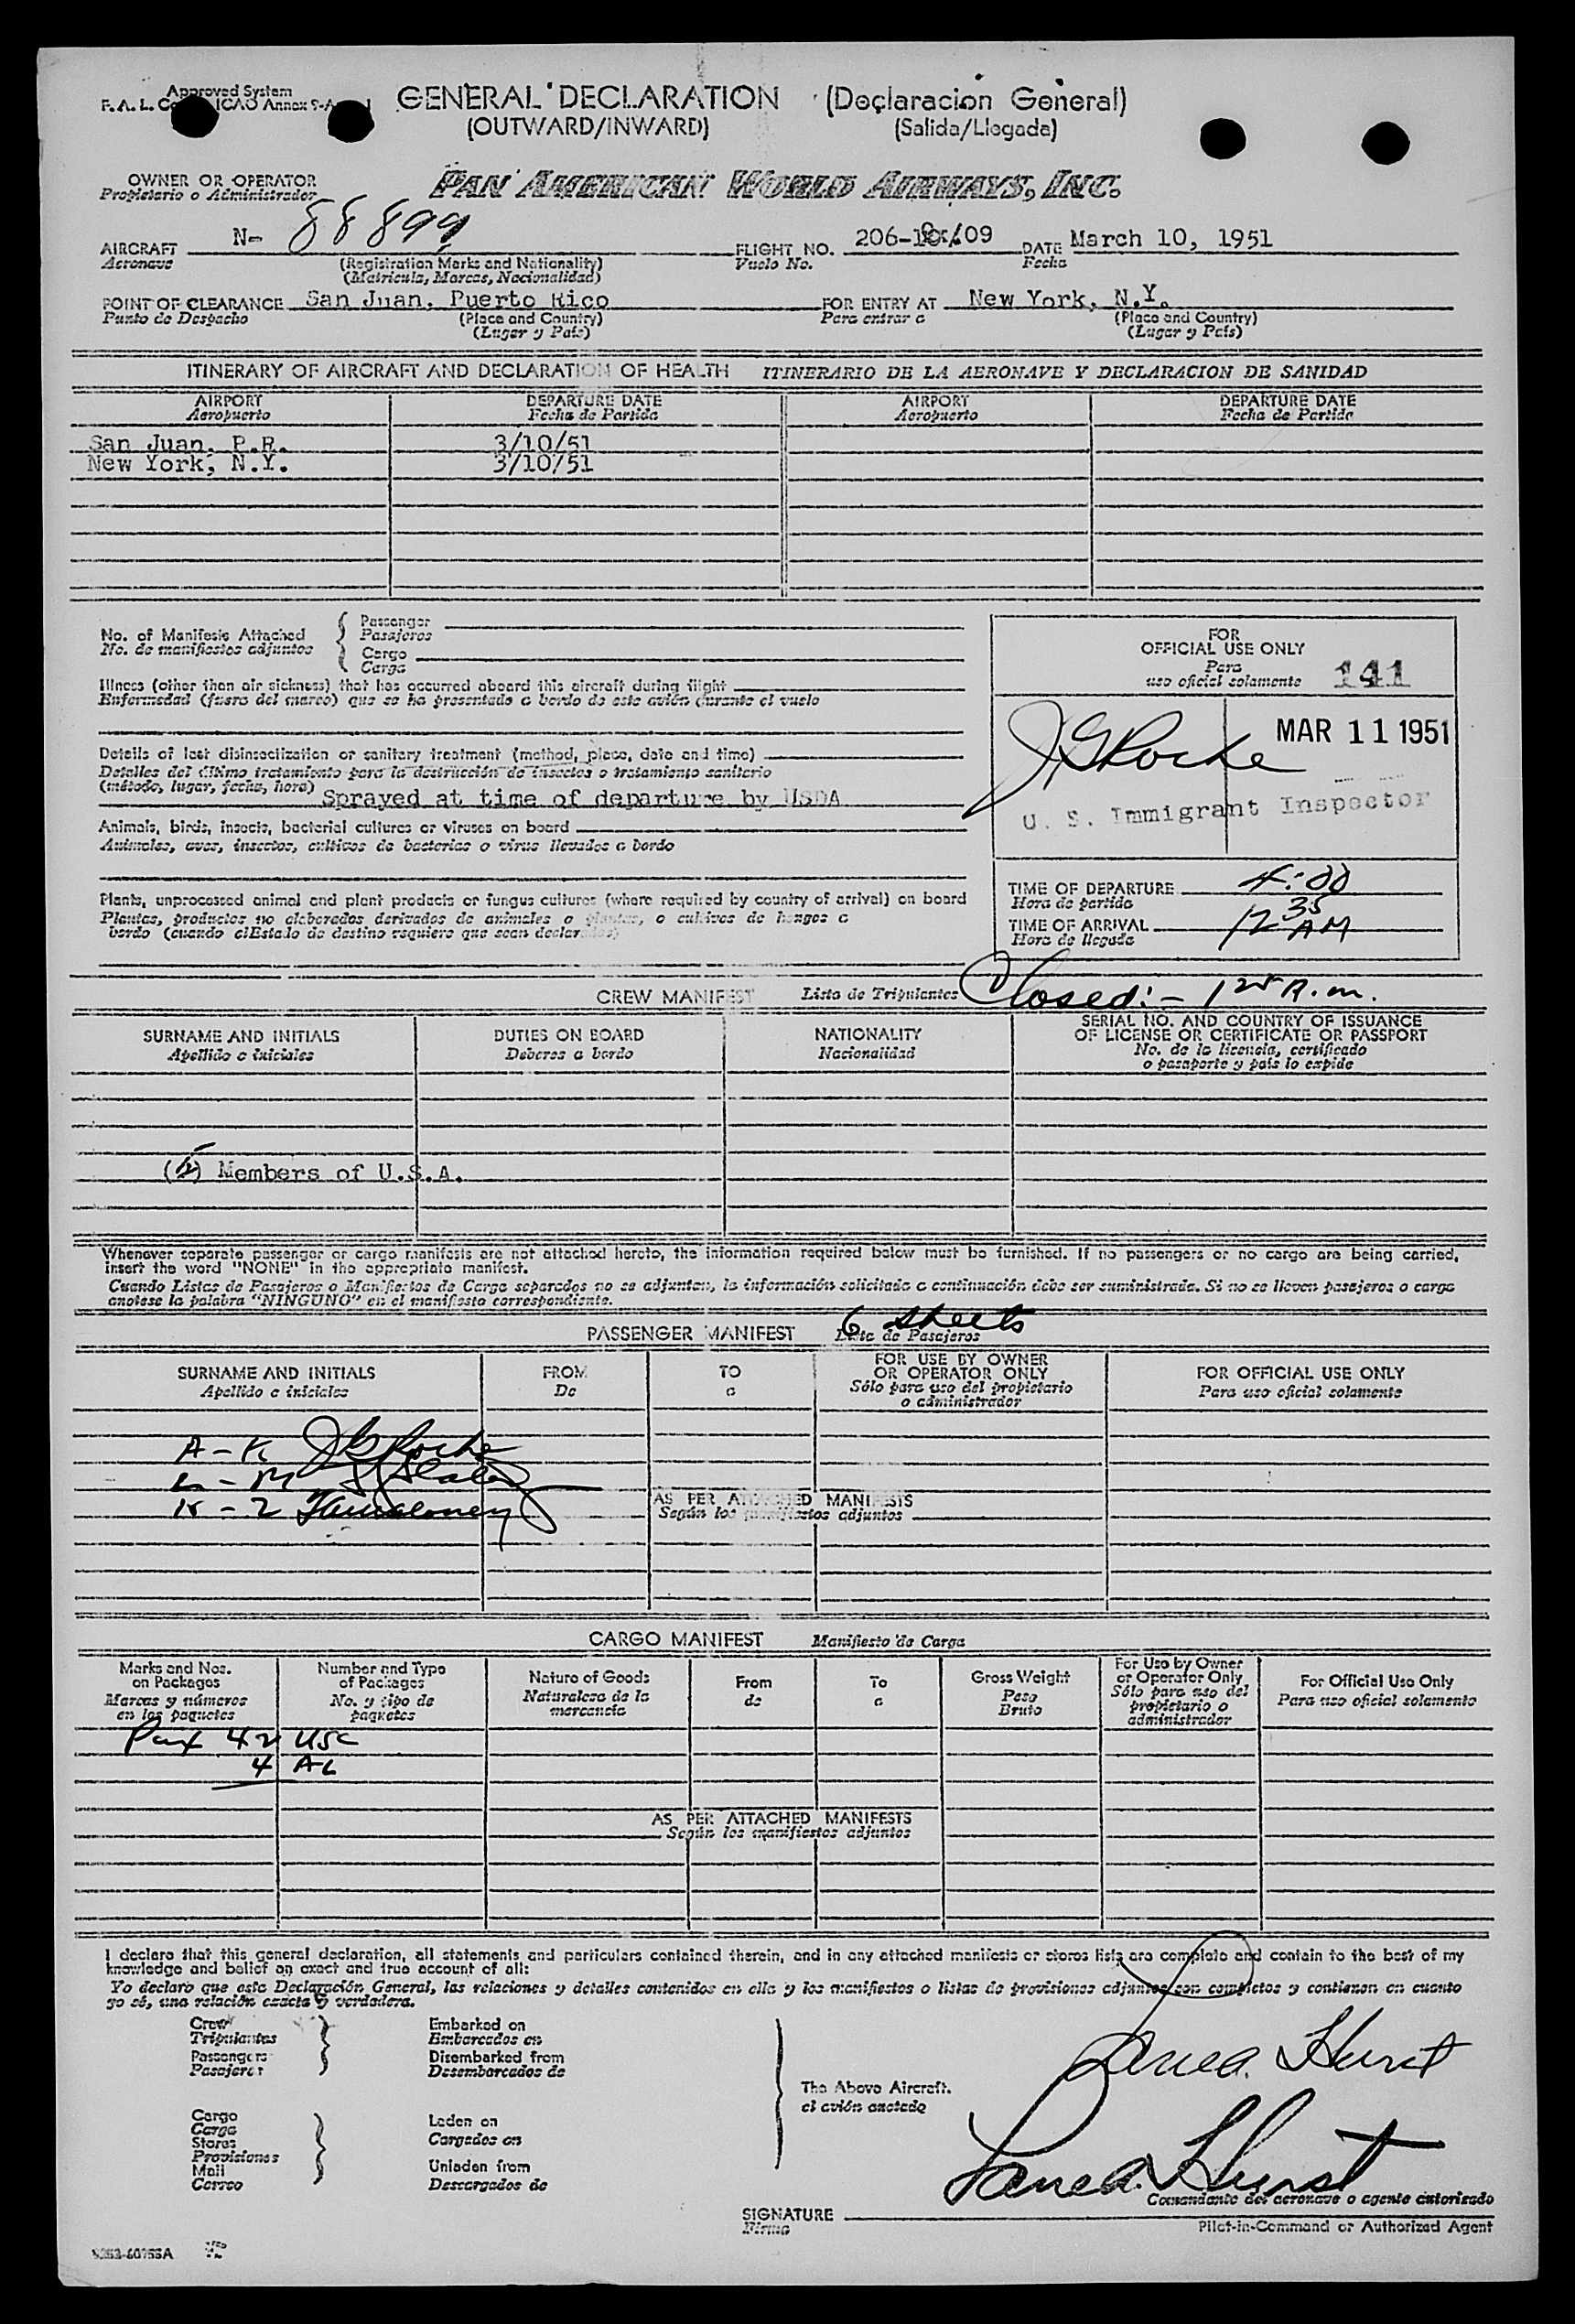 Approved System
F. A. L. ICAO Annex 9-
GENERAL DECLARATION (Declaracion General)
(OUTWARD/INWARD) (Salida/Llegada)
OWNER OR OPERATOR PAN AMERICAN WORLD AIRWAYS, INC.
Propietario o Administrador
AIRCRAFT N- 88899 FLIGHT NO. 206- /09 DATE March 10, 1951
Aeronave (Registration Marks and Nationality) Vuelo No. Fecha
(Matricula, Marcas, Nacionalidad)
POINT OF CLEARANCE San Juan, Puerto Rico FOR ENTRY AT New York, N.Y.
Punto de Despacho (Place and Country) Para entrar a (Place and Country)
(Lugar y País) (Lugar y País)
ITINERARY OF AIRCRAFT AND DECLARATION OF HEALTH ITINERARIO DE LA AERONAVE Y DECLARACION DE SANIDAD
AIRPORT DEPARTURE DATE AIRPORT DEPARTURE DATE
Aeropuerto Fecha de Partida Aeropuerto Fecha de Partida
San Juan, P.R. 3/10/51
New York, N.Y. 3/10/51
No. of Manifests Attached { Passenger
No. de manifiestos adjuntos Pasajeros
Cargo
Carga
Illness (other than air sickness) that has occurred aboard this aircraft during flight
Enfermedad (fuera del mareo) que se ha presentado a bordo de este avión durante el vuelo
Details of last disinsectization or sanitary treatment (method, place, date and time)
Detalles del último tratamiento para la destrucción de insectos o tratamiento sanitario
(método, lugar, fecha, hora) Sprayed at time of departure by USDA
Animals, birds, insects, bacterial cultures or viruses on board
Animales, aves, insectos, cultivos de bacterias o virus llevados a bordo
Plants, unprocessed animal and plant products or fungus cultures (where required by country of arrival) on board
Plantas, productos no elaborados derivados de animales o plantas, o cultivos de hongos a
bordo (cuando el Estado de destino requiere que sean declarados)
FOR
OFFICIAL USE ONLY
Para
uso oficial solamente 141
J G Roche MAR 11 1951
U. S. Immigrant Inspector
TIME OF DEPARTURE 4:00
Hora de partida
TIME OF ARRIVAL 12 35 AM
Hora de llegada
CREW MANIFEST Lista de Tripulantes Closed:- 1 25 A.m.
SURNAME AND INITIALS DUTIES ON BOARD NATIONALITY SERIAL NO. AND COUNTRY OF ISSUANCE
OF LICENSE OR CERTIFICATE OR PASSPORT
Apellido e iniciales Deberes a bordo Nacionalidad No. de la licencia, certificado
o pasaporte y país lo expide
(5) Members of U.S.A.
Whenever separate passenger or cargo manifests are not attached hereto, the information required below must be furnished. If no passengers or no cargo are being carried,
insert the word "NONE" in the appropriate manifest.
Cuando Listas de Pasajeros o Manifiestos de Carga separados no se adjuntan, la información solicitada a continuación debe ser suministrada. Si no se lleven pasajeros o carga
anotese la palabra "NINGUNO" en el manifiesto correspondiente.
PASSENGER MANIFEST Lista de Pasajeros 6 sheets
SURNAME AND INITIALS FROM TO FOR USE BY OWNER
OR OPERATOR ONLY FOR OFFICIAL USE ONLY
Apellido e iniciales De a Sólo para uso del propietario
o administrador Para uso oficial solamente
A - K J G Roche
L - M
N - Z
AS PER ATTACHED MANIFESTS
Según los manifiestos adjuntos
CARGO MANIFEST Manifiesto de Carga
Marks and Nos.
on Packages
Marcas y números
en los paquetes
Number and Type
of Packages
No. y tipo de
paquetes
Nature of Goods
Naturaleza de la
mercancia
From
de
To
a
Gross Weight
Peso
Bruto
For Use by Owner
or Operator Only
Sólo para uso del
propietario o
administrador
For Official Use Only
Para uso oficial solamente
Pax 42 USC
4 AL
AS PER ATTACHED MANIFESTS
Según los manifiestos adjuntos
I declare that this general declaration, all statements and particulars contained therein, and in any attached manifests or stores lists are complete and contain to the best of my
knowledge and belief an exact and true account of all:
Yo declaro que esta Declaración General, las relaciones y detalles contenidos en ella y los manifiestos o listas de provisiones adjuntos son completos y contienen en cuanto
yo sé, una relación exacta y verdadera.
Crew Embarked on
Tripulantes Embarcados en
Passengers Disembarked from
Pasajeros Desembarcados de
The Above Aircraft.
el avión anotado
Cargo Laden on
Carga Cargados en
Stores
Provisiones Unladen from
Mail Descargados de
Correo
Hurst
Hurst
Comandante del aeronave o agente autorizado
SIGNATURE
Firma Pilot-in-Command or Authorized Agent